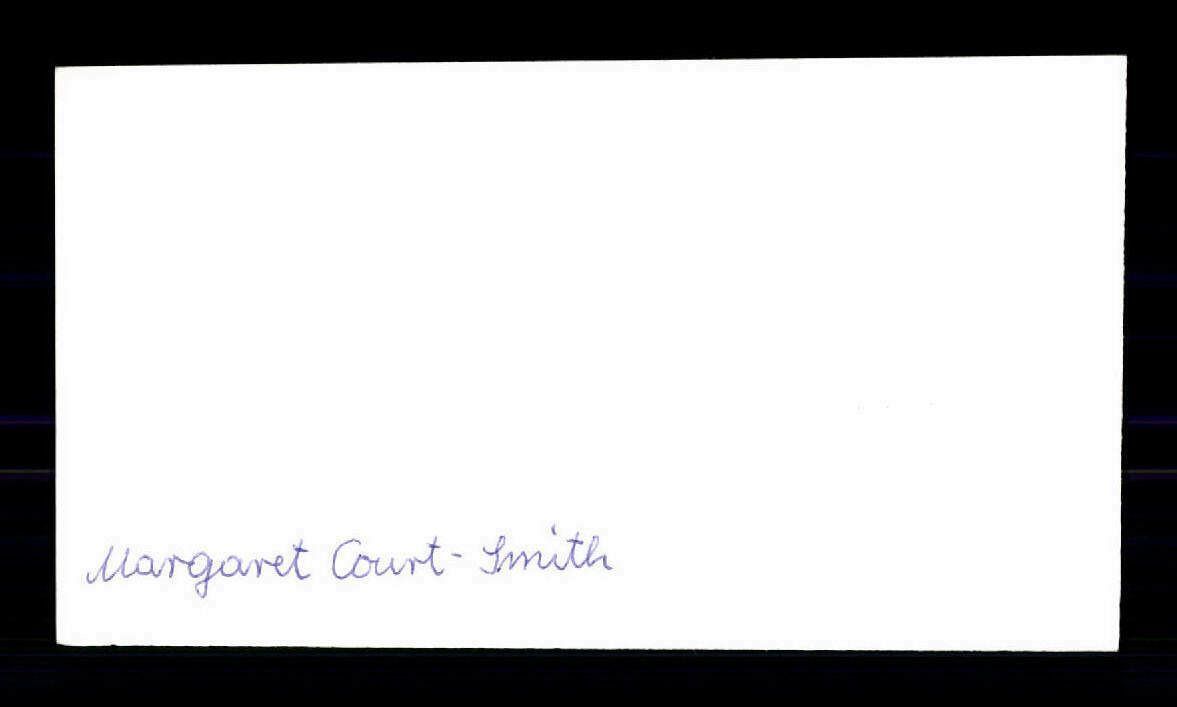 Margaret Court-Smith